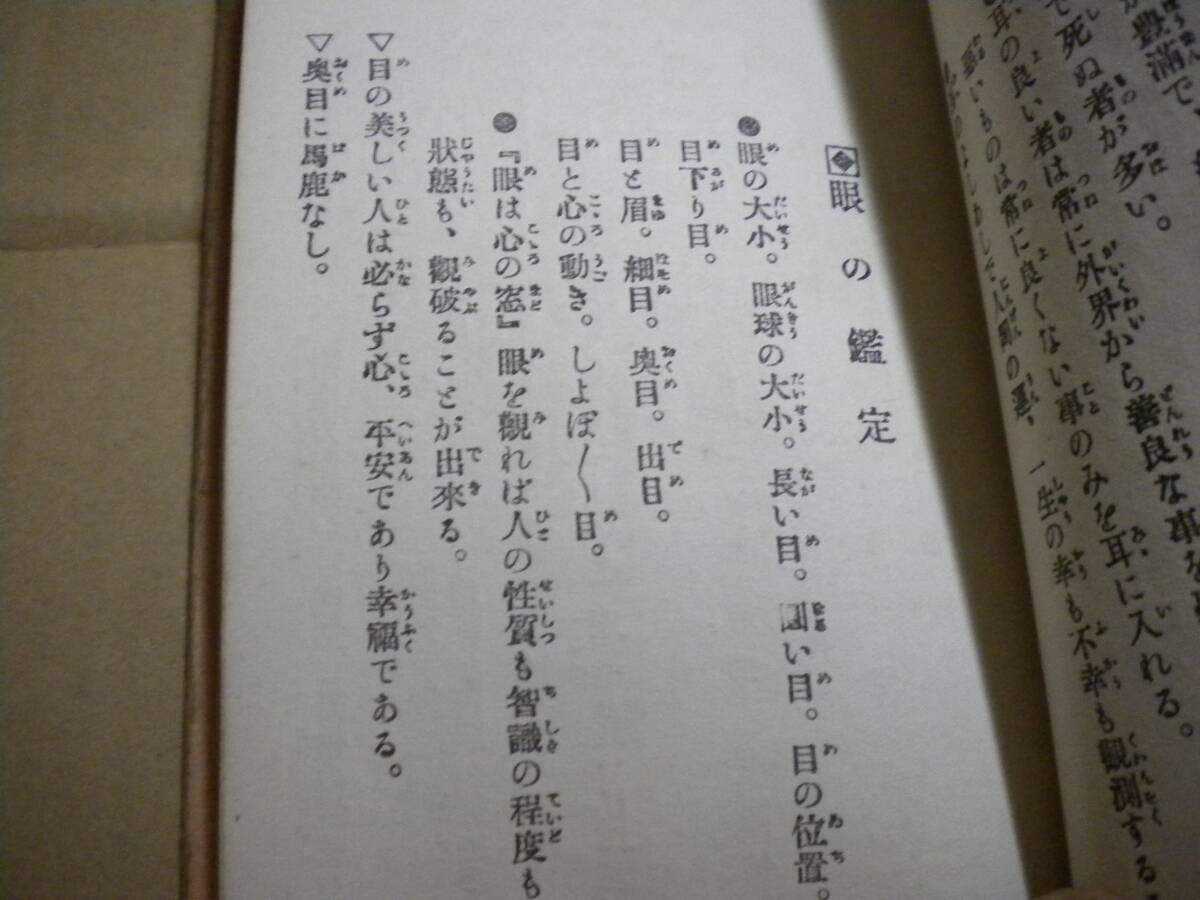 豊滿で
で死ぬ者が多い。
耳の良い者は常に外界から善良な事を
悪いものは常に良くない事のみを耳に入れる。
人間の運、一生の幸も不幸も觀測する
眼の鑑定
●眼の大小。眼球の大小。長い目。圓い目。目の位置。
目下り目。
目と眉。細目。奥目。出目。
目と心の動き。しよぼ〱目。
●『眼は心の窓』眼を觀れば人の性質も智識の程度も
狀態も、觀破ることが出來る。
▽目の美しい人は必らず心、平安であり幸福である。
▽奥目に馬鹿なし。